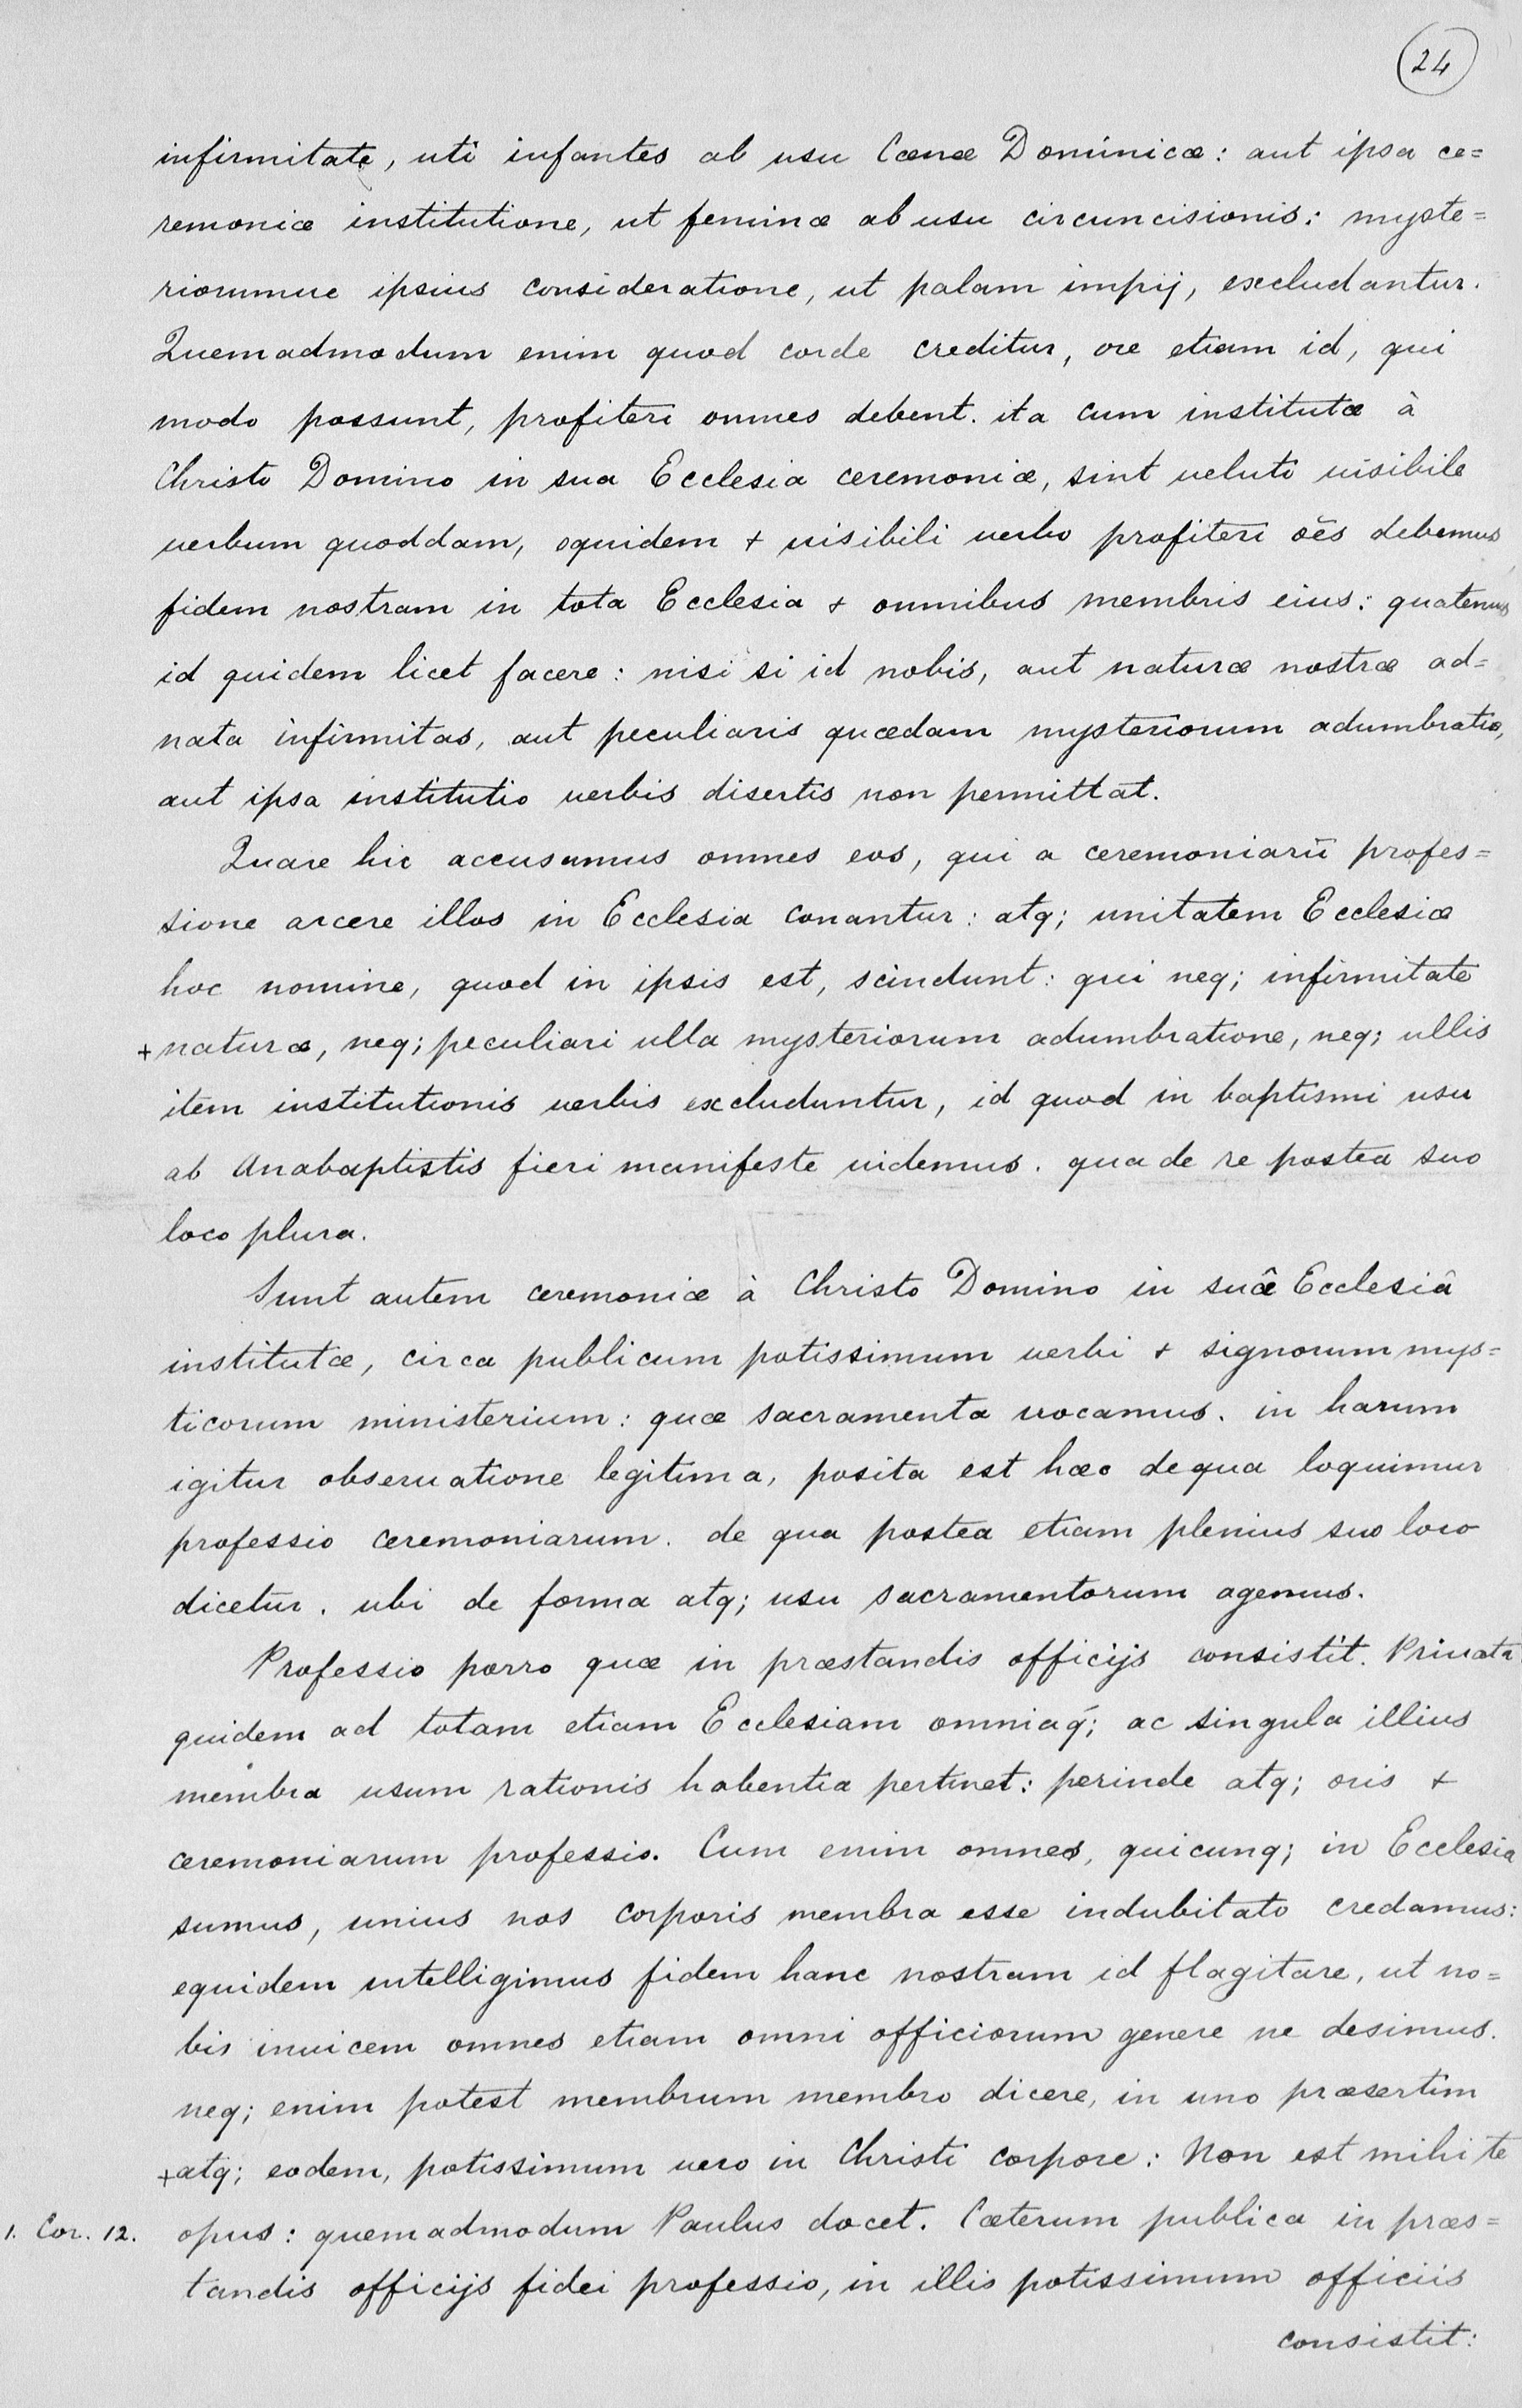 24
infirmitate, uti infantes ab usu Cœnæ Dominicæ: aut ipsa ce=
remoniæ institutione, ut feminæ ab usu circuncisionis: myste=
riorumue ipsius consideratione, ut palam impij, excludantur.
Quemadmodum enim quod corde creditur, ore etiam id, qui
modo possunt, profiteri omnes debent. ita cum institutæ à
Christo Domino in sua Ecclesia ceremoniæ, sint ueluti uisibile
uerbum quoddam, equidem + uisibili uerbo profiteri oēs debemus
fidem nostram in tota Ecclesia + omnibus membris eius: quatenus
id quidem licet facere: nisi si id nobis, aut naturæ nostræ ad=
nata infirmitas, aut peculiaris quædam mysteriorum adumbratio,
aut ipsa institutio uerbis disertis non permittat.
Quare hic accusamus omnes eos, qui a ceremoniarū profes=
sione arcere illos in Ecclesia conantur: atq; unitatem Ecclesiæ
hoc nomine, quod in ipsis est, scindunt: qui neq; infirmitate
+ naturæ, neq; peculiari ulla mysteriorum adumbratione, neq; ullis
item institutionis uerbis excluduntur, id quod in baptismi usu
ab Anabaptistis fieri manifeste uidemus. qua de re postea suo
loco plura.
Sunt autem ceremoniæ à Christo Domino in suâ Ecclesiâ
institutæ, circa publicum potissimum uerbi + signorum mys=
ticorum ministerium: quæ sacramenta uocamus. in harum
igitur obseruatione legitima, posita est hæc de qua loquimur
professio ceremoniarum. de qua postea etiam plenius suo loco
dicetur. ubi de forma atq; usu sacramentorum agemus.
Professio porro quæ in præstandis officijs consistit. Priuata
quidem ad totam etiam Ecclesiam omniaq́; ac singula illius
membra usum rationis habentia pertinet: perinde atq; oris +
ceremoniarum professio. Cum enim omnes, quicunq; in Ecclesia
sumus, unius nos corporis membra esse indubitato credamus:
equidem intelligimus fidem hanc nostram id flagitare, ut no=
bis inuicem omnes etiam omni officiorum genere ne desimus.
neq; enim potest membrum membro dicere, in uno præsertim
+ atq; eodem, potissimum uero in Christi corpore: Non est mihi te
1. Cor. 12. opus: quemadmodum Paulus docet. Cæterum publica in præs=
tandis officijs fidei professio, in illis potissimum officiis
consistit: